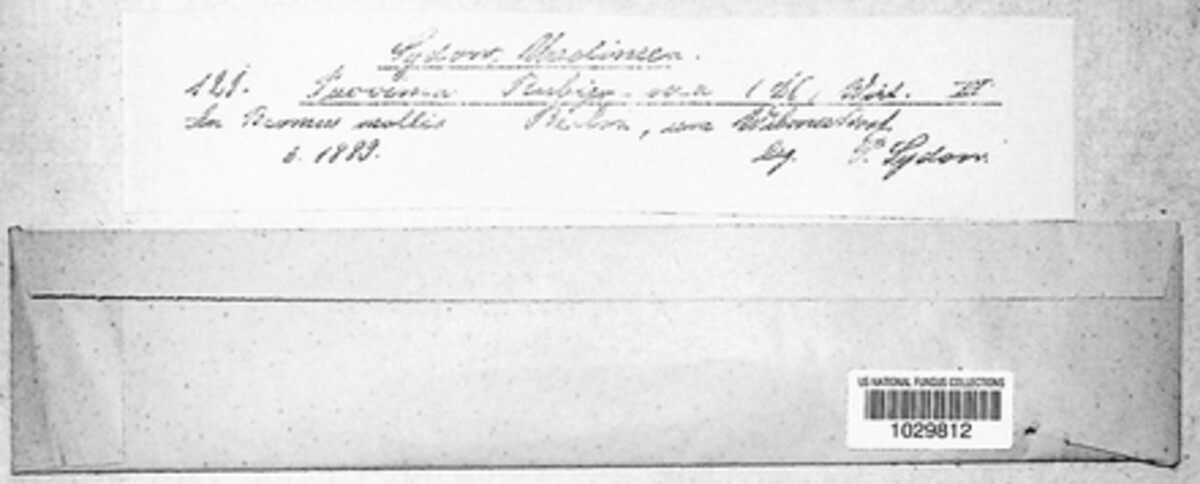 Sydow, Uredineen.
121. Puccinia Rubigo-vera (DC) Wint. III
An Bromus mollis Berlin, am
6. 1889. leg. P. Sydow.
US NATIONAL FUNGUS COLLECTIONS
1029812